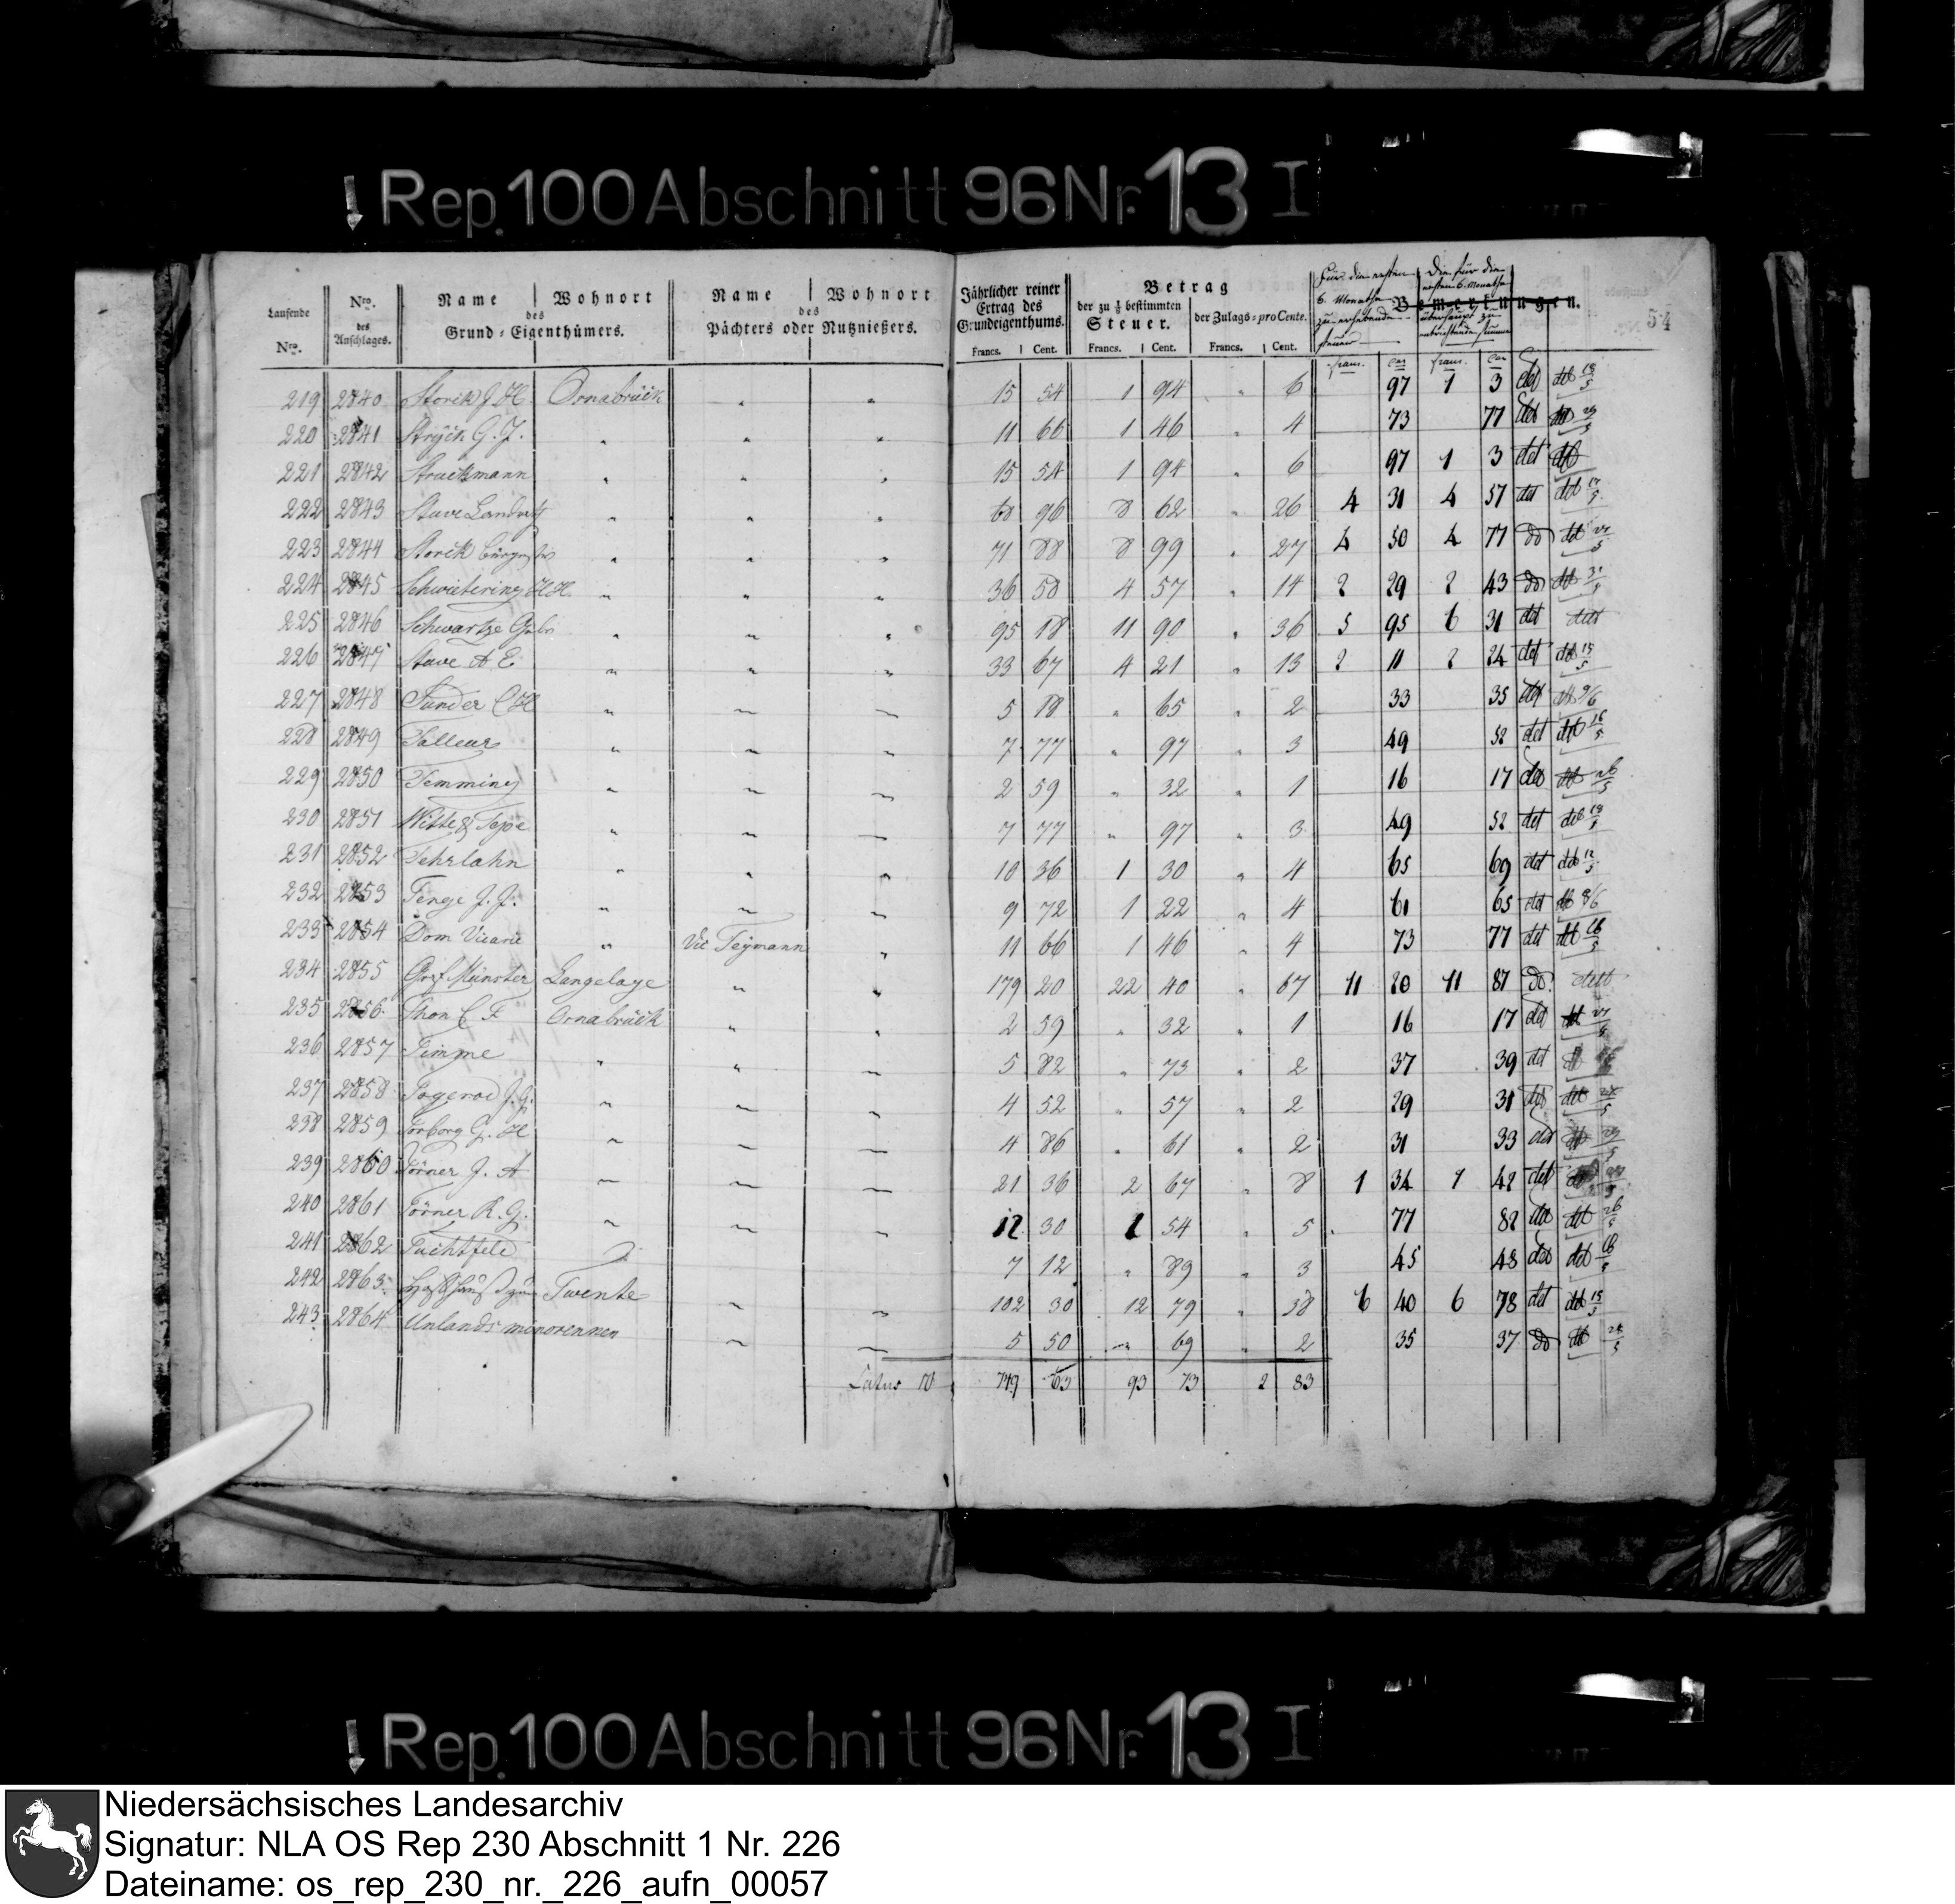 Rep. 100 Abschnitt 96 Nr. 13 I
Laufende Nro. | Nro. des Anschlages. | Name | Wohnort des Grund-Eigenthümers. | Name | Wohnort des Pächters oder Nutznießers. | Jährlicher reiner Ertrag des Grundeigenthums. | Betrag der zu 1/8 bestimmten Steuer. | der Zulags-pro Cente. | Für die ersten 6. Monathe zu erhebende Steuer | Die für die ersten 6. Monathe überhaupt zu entrichtende Summe | Bemerkungen. 54
Francs. | Cent. | Francs. | Cent. | Francs. | Cent. | franc. | Cen | franc. | Cen
219 2840 Storck J H Osnabrück " " 15 54 1 94 " 6 97 1 3 det
220 2841 Stryck G. J. " " " 11 66 1 46 " 4 73 77 det
221 2842 Struckmann " " " 15 54 1 94 " 6 97 1 3 det
222 2843 Stuve " " " 60 96 8 62 " 26 4 31 4 57 det
223 2844 Storck " " " 71 88 8 99 " 27 4 50 4 77 do
224 2845 Schwietering HH. " " " 36 58 4 57 " 14 2 29 2 43 do
225 2846 Schwartze " " " 95 18 11 90 " 36 5 95 6 31 det
226 2847 Stuve A E " " " 33 67 4 21 " 13 2 11 2 24 det
227 2848 Sunder C H " " " 5 18 " 65 " 2 33 35 det
228 2849 Talleur " " " 7 77 " 97 " 3 49 52 det
229 2850 Temming " " " 2 59 " 32 " 1 16 17 det
230 2851 Witte & Tepe " " " 7 77 " 97 " 3 49 52 det
231 2852 " " " 10 36 1 30 " 4 65 69 det
232 2853 Tenge J. J. " " " 9 72 1 22 " 4 61 65 det
233 2854 Dom Vicarie " Vic Teymann " 11 66 1 46 " 4 73 77 det
234 2855 Graf Münster Langelage " " 179 20 22 40 " 67 11 20 11 87 do.
235 2856 Thon C F Osnabrück " " 2 59 " 32 " 1 16 17 det
236 2857 Timme " " " 5 82 " 73 " 2 37 39 det
237 2858 J. G. " " " 4 52 " 57 " 2 29 31 det
238 2859 Torborg G. H " " " 4 86 " 61 " 2 31 33 det
239 2860 Törner J. A " " " 21 36 2 67 " 8 1 34 1 42 det
240 2861 Törner R. G. " " " 12 30 1 54 " 5 77 82 det
241 2862 Tuchtfeld 7 12 " 89 " 3 45 48 det
242 2863 Twente " " 102 30 12 79 " 38 6 40 6 78 det
243 2864 Unlands minorennen " " 5 50 " 69 " 2 35 37 do
Latus 10 749 63 93 73 2 83
Rep. 100 Abschnitt 96 Nr. 13 I
Niedersächsisches Landesarchiv
Signatur: NLA OS Rep 230 Abschnitt 1 Nr. 226
Dateiname: os_rep_230_nr._226_aufn_00057